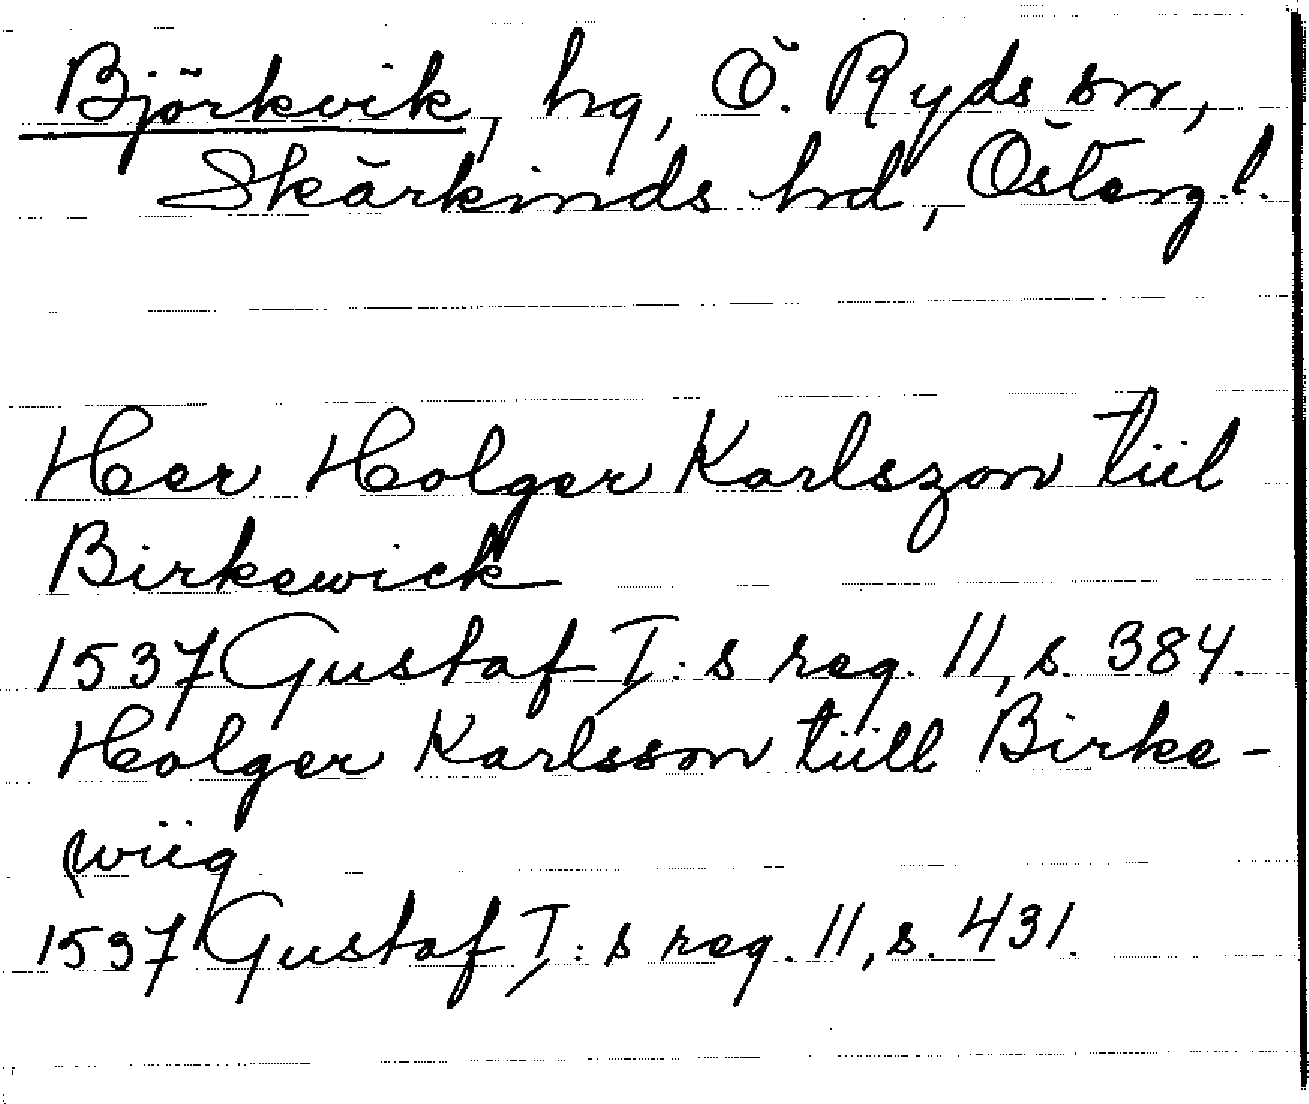 Björkvik, hg, Ö. Ryds sn,
Skärkinds hd, Österg.l.
Her Holger Karlszon tiil
Birkewick
1537 Gustaf I:s reg. 11, s. 384.
Holger Karlsson tiill Birke-
wiig
1537 Gustaf I:s reg. 11, s. 431.